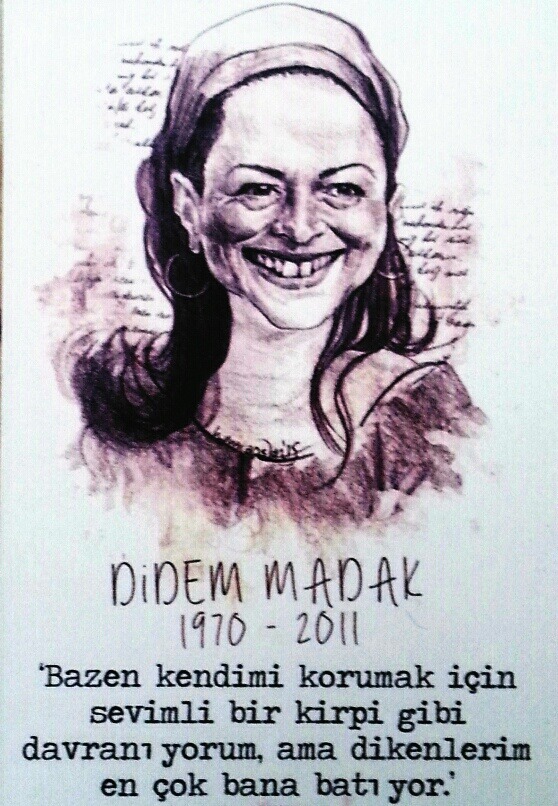 DiDEM MADAK
1970 - 2011
'Bazen kendimi korumak için
sevimli bir kirpi gibi
davranı yorum, ama dikenlerim
en çok bana batı yor.'